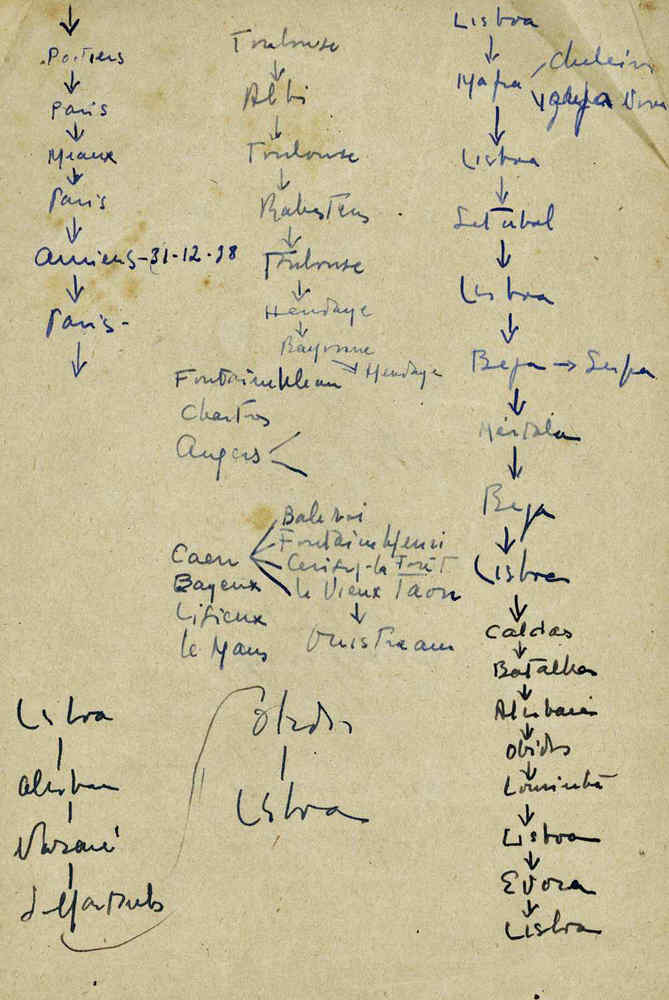 ↓
Poitiers
↓
Paris
↓
Meaux
↓
Paris
↓
Amiens-31-12-38
↓
Paris-
↓
Toulouse
↓
Albi
↓
Toulouse
↓
Rabastens
↓
Toulouse
↓
Hendaye
↓
Bayonne
→ Hendaye
Fontainebleau
Chartres
Angers
Caen
Bayeux
Lisieux
Le Mans
Fontaine Henri
Cerisy-la Forêt
le Vieux Taon
↓
Ouistream
Lisboa
↓
Mafra
Cheleiros
↓
Lisboa
↓
Setubal
↓
Lisboa
↓
Beja → Serpa
↓
Mertola
↓
Beja
↓
Lisboa
↓
Caldas
↓
Batalha
↓
Alcobaça
↓
Obidos
↓
Lourinhã
↓
Lisboa
↓
Evora
↓
Lisboa
Lisboa
Alcobaça
Nazaré
S. Martinho
Obidos
Lisboa